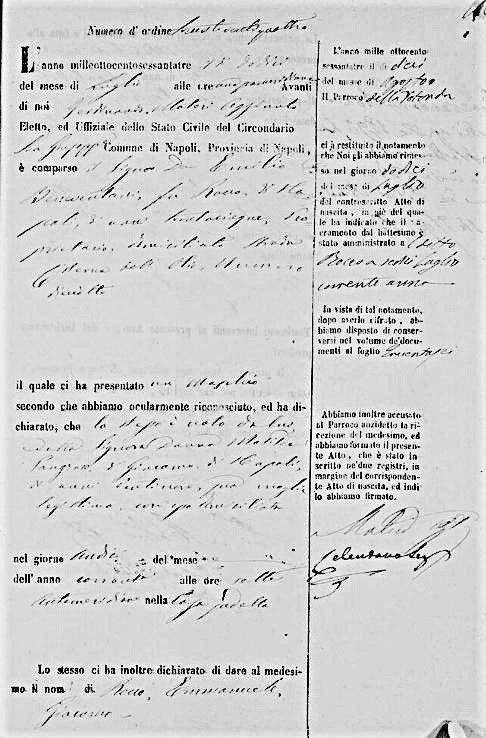 Numero d'ordine
L'anno milleottocentosessantatre il dì dodici
del mese di Luglio alle ore Avanti
di noi Ferdinando Aggiunto
Eletto, ed Uffiziale dello Stato Civile del Circondario
S. Giuseppe Comune di Napoli, Provincia di Napoli,
è comparso il Signor Don Emilio
fu Rocco, di Na
poli di anni trentacinque, pro
prietario, domiciliato Strada
Cisterna dell'Olio, Numero
diciotto
il quale ci ha presentato un Maschio
secondo che abbiamo ocularmente riconosciuto, ed ha di-
chiarato, che lo stesso è nato da lui,
dalla Signora Donna Matilde
di Giacomo, di Napoli,
di anni sua moglie
legittima, con esso domiciliata
nel giorno undici del mese
dell'anno corrente alle ore sette
antimeridiane nella Casa suddetta
Lo stesso ci ha inoltre dichiarato di dare al medesi-
mo il nome di Rocco, Emmanuele,
Giacomo
L'anno mille ottocento-
sessantatre il dì dieci
del mese di Agosto
Il Parroco della Rotonda
ci à restituito il notamento
che Noi gli abbiamo rimes-
so nel giorno dodici
del mese di Luglio
del controscritto Atto di
nascita, in piè del qua-
le ha indicato che il sa-
cramento del battesimo è
stato amministrato a detto
Rocco a sedici Luglio
corrente anno
In vista di tal notamento,
dopo averlo cifrato, ab-
biamo disposto di conser-
varsi nel volume de'docu-
menti al foglio
Abbiamo inoltre accusato
al Parroco anzidetto la ri-
cezione del medesimo, ed
abbiamo formato il presen-
te Atto, che è stato in-
scritto ne'due registri, in
margine del corrisponden-
te Atto di nascita, ed indi
lo abbiamo firmato.
Celentano